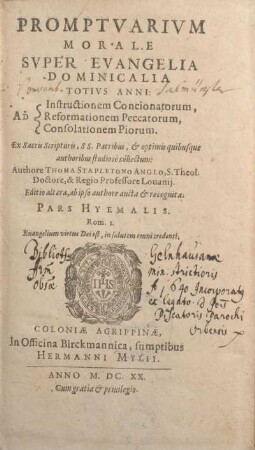 PROMPTVARIVM
MORALE
SVPER EVANGELIA
DOMINICALIA
TOTIVS ANNI:
Instructionem Concionatorum,
Ad Reformationem Peccatorum,
Consolationem Piorum.
Ex Sacris Scripturis, SS. Patribus, & optimis quibusque
authoribus studiosè collectum:
Authore THOMA STAPLETONO ANGLO, S. Theol.
Doctore, & Regio Professore Louanij.
Editio altera, ab ipso authore aucta & recognita.
PARS HYEMALIS.
Rom. 1.
Euangelium virtus Dei est, in salutem omni credenti.
Gelnhausanæ
min. strictioris
A. 1640 Incorporat9
ex legato
Piscatoris Parochi
COLONIÆ AGRIPPINÆ,
In Officina Birckmannica, sumptibus
HERMANNI MYLII.
ANNO M. DC. XX.
Cum gratia & priuilegio.